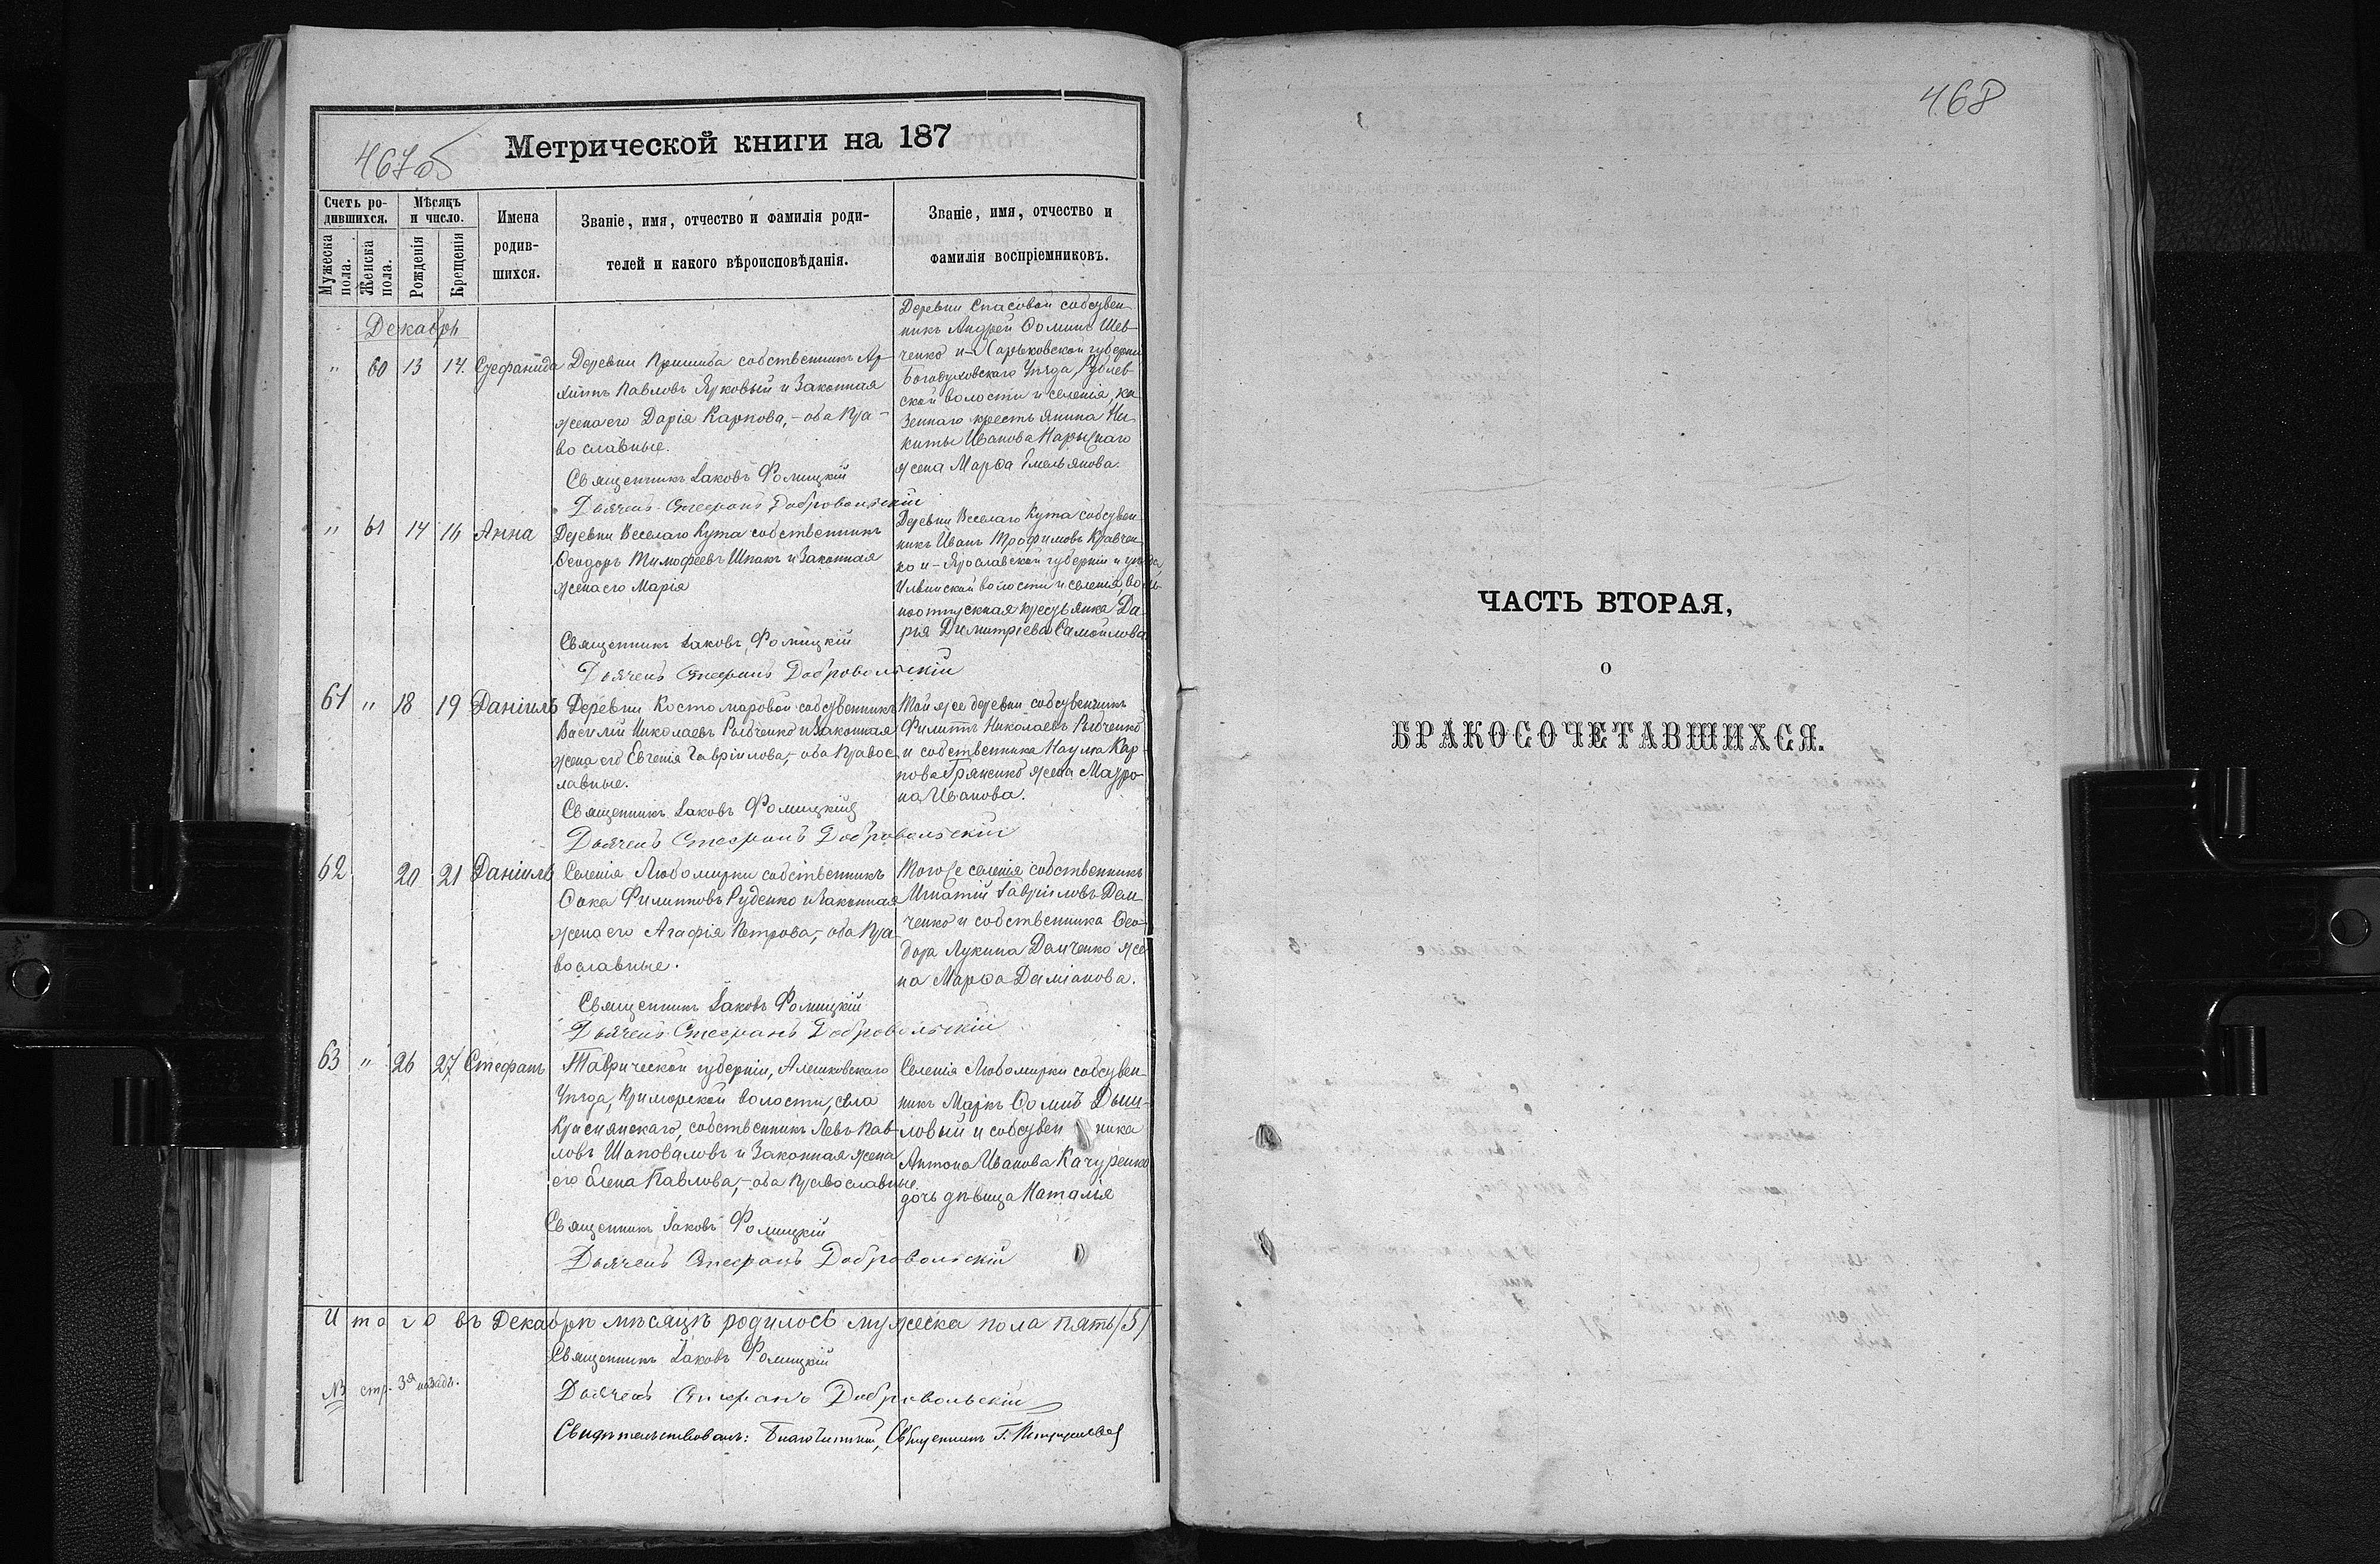 467об
Метрической книги на 187
Счетъ ро-
дившихся.
Мѣсяцъ
и число.
Имена
родив-
шихся.
Званіе, имя, отчество и фамилія роди-
телей и какого вѣроисповѣданія.
Званіе, имя, отчество и
фамилія воспріемниковъ.
Мужеска
пола.
Женска
пола.
Рожденія
Крещенія
Декабрь
„ 60 13 14. Стефанида
Деревни Пришиба собственникъ Ар-
хиппъ Павловъ Ярковый и Законная
жена его Дарія Карпова, – оба Пра-
вославные.
Священникъ Іаковъ Фомицкій
Дьячекъ Стефанъ Добровольскій
Деревни Спасовой собствен-
никъ Андрей Ѳоминъ Шев-
ченко и – Харьковской губерніи
Богодуховскаго Уѣзда, Рублев-
ской волости и селенія, ка-
зеннаго крестьянина Ни-
киты Иванова Нарыжнаго
жена Марѳа Емельянова.
„ 61 14 16 Анна
Деревни Веселаго Кута собственникъ
Ѳеодоръ Тимофеевъ Шпакъ и Законная
жена его Марія
Священникъ Іаковъ Фомицкій
Дьячекъ Стефанъ Добровольскій
Деревни Веселаго Кута собствен-
никъ Иванъ Трофимовъ Кравчен-
ко и – Ярославской губерніи и уѣзда,
волости и селенія, воль-
ноотпускная крестьянка Да-
рія Димитріева Самойлова
61 „ 18 19 Даніилъ
Деревни Костомаровой собственникъ
Василій Николаевъ Рябченко и Законная
жена его Евгенія Гавріилова, – оба Правос-
лавные.
Священникъ Іаковъ Фомицкій
Дьячекъ Стефанъ Добровольскій
Той же деревни собственникъ
Филиппъ Николаевъ Рябченко
и собственника Наума Кар-
пова жена Матро-
на Иванова.
62 20 21 Даніилъ
Селенія Любомирки собственникъ
Ѳока Филипповъ Руденко и Законная
жена его Агафія Петрова, – оба Пра-
вославные.
Священникъ Іаковъ Фомицкій
Дьячекъ Стефанъ Добровольскій
Того же селенія собственникъ
Игнатій Гавріиловъ Дем-
ченко и собственника Ѳео-
дора Лукина Демченко же-
на Марѳа Даміанова.
63 „ 26 27 Стефанъ
Таврической губерніи, Алешковскаго
Уѣзда, Приморской волости, села
собственникъ Левъ Пав-
ловъ Шаповаловъ и Законная жена
его Елена Павлова, – оба Православные.
Священникъ Іаковъ Фомицкій
Дьячекъ Стефанъ Добровольскій
Селенія Любомирки собствен-
никъ Маркъ Ѳоминъ Дыш-
ловый и собственника
Антона Иванова Качуренко
дочь дѣвица Наталія
Итого въ Декабрѣ мѣсяцѣ родилось мужеска пола пять /5/
Священникъ Іаковъ Фомицкій
№ стр. 3я назадъ.
Дьячекъ Стефанъ Добровольскій
Свидѣтельствовалъ: Благочинный, Священникъ Г.
468
ЧАСТЬ ВТОРАЯ,
О
БРАКОСОЧЕТАВШИХСЯ.